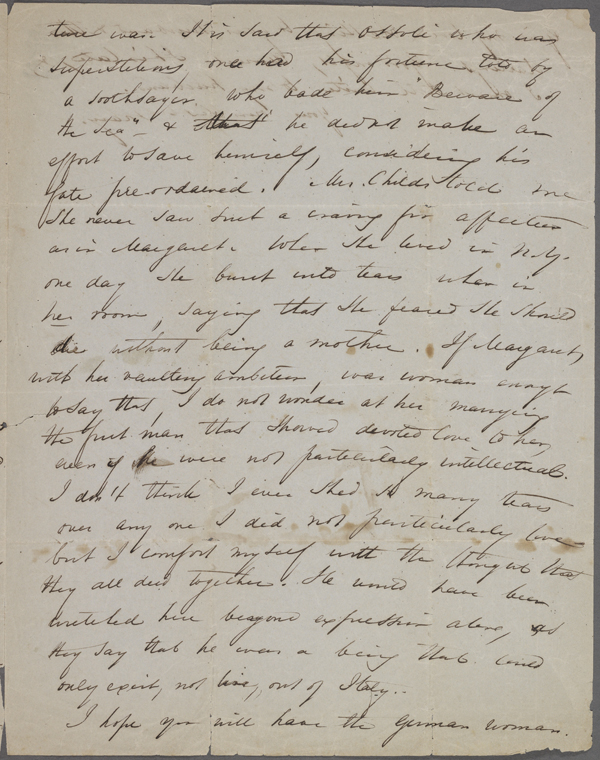 ture was. It is said that Ossoli who was
superstitious, once had his fortune told by
a soothsayer who bade him "Beware of
the Sea" - & that he did not make an
effort to save himself, considering his
fate pre-ordained. Mrs. Childs told me
She never saw such a craving for affection
as in Margaret. When She lived in N.Y.
one day She burst into tears when in
her room, saying that She feared She Should
die without being a mother. If Margaret,
with her vaulting ambition, was woman enough
to say that, I do not wonder at her marrying
the first man that Showed devoted love to her,
even if he were not particularly intellectual.
I don't think I ever Shed so many tears
over any one I did not particularly love
but I comfort myself with the thought that
they all died together. He would have been
wretched here beyond expression alone, and
they say that he was a being that could
only exist, not live, out of Italy.
I hope you will have the German woman.